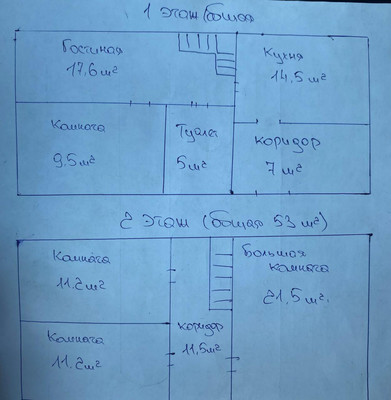 1 этаж (бощая
Гостиная
17,6 м²
Кухня
14,5 м²
Комната
9.5 м²
Туалет
5 м²
коридор
7 м²
2 этаж (бощая 53 м²)
Комната
11.2 м²
Большая
комната
21,5 м².
Комната
11.2 м²
коридор
11,5 м²